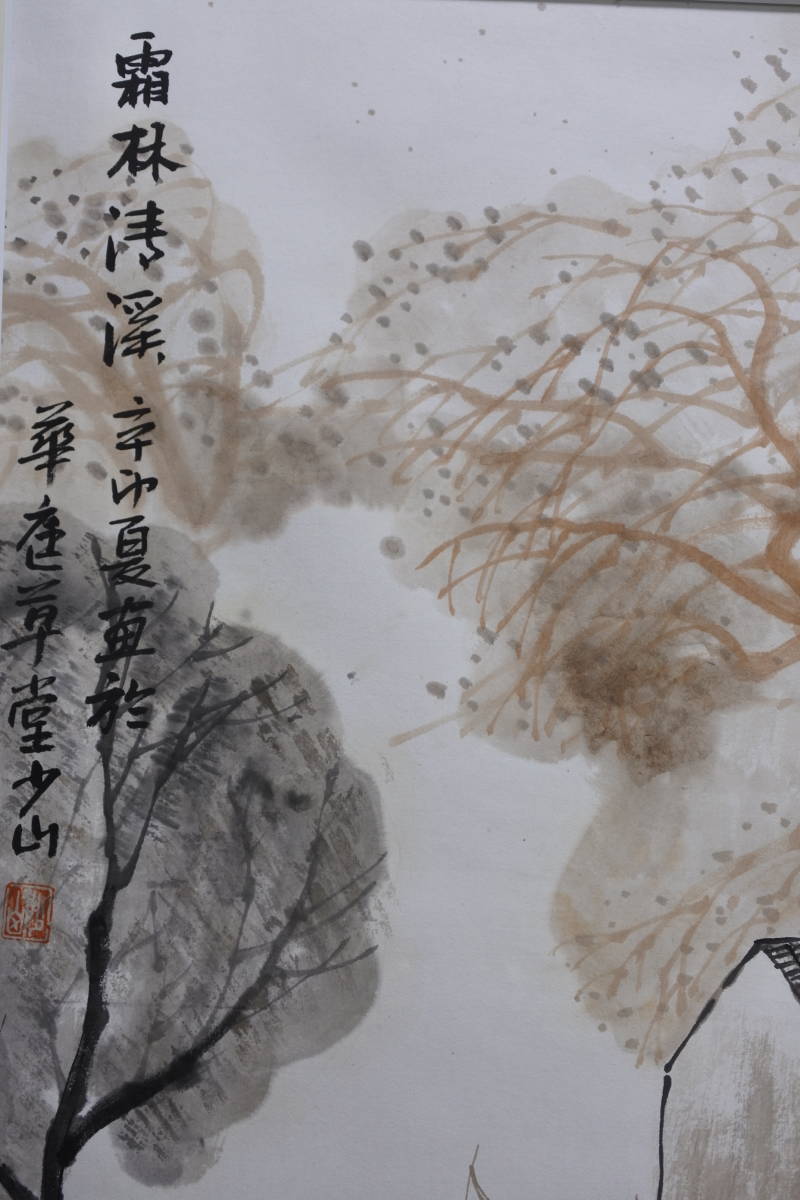 霜林清溪 辛卯夏画於
華庭草堂少山